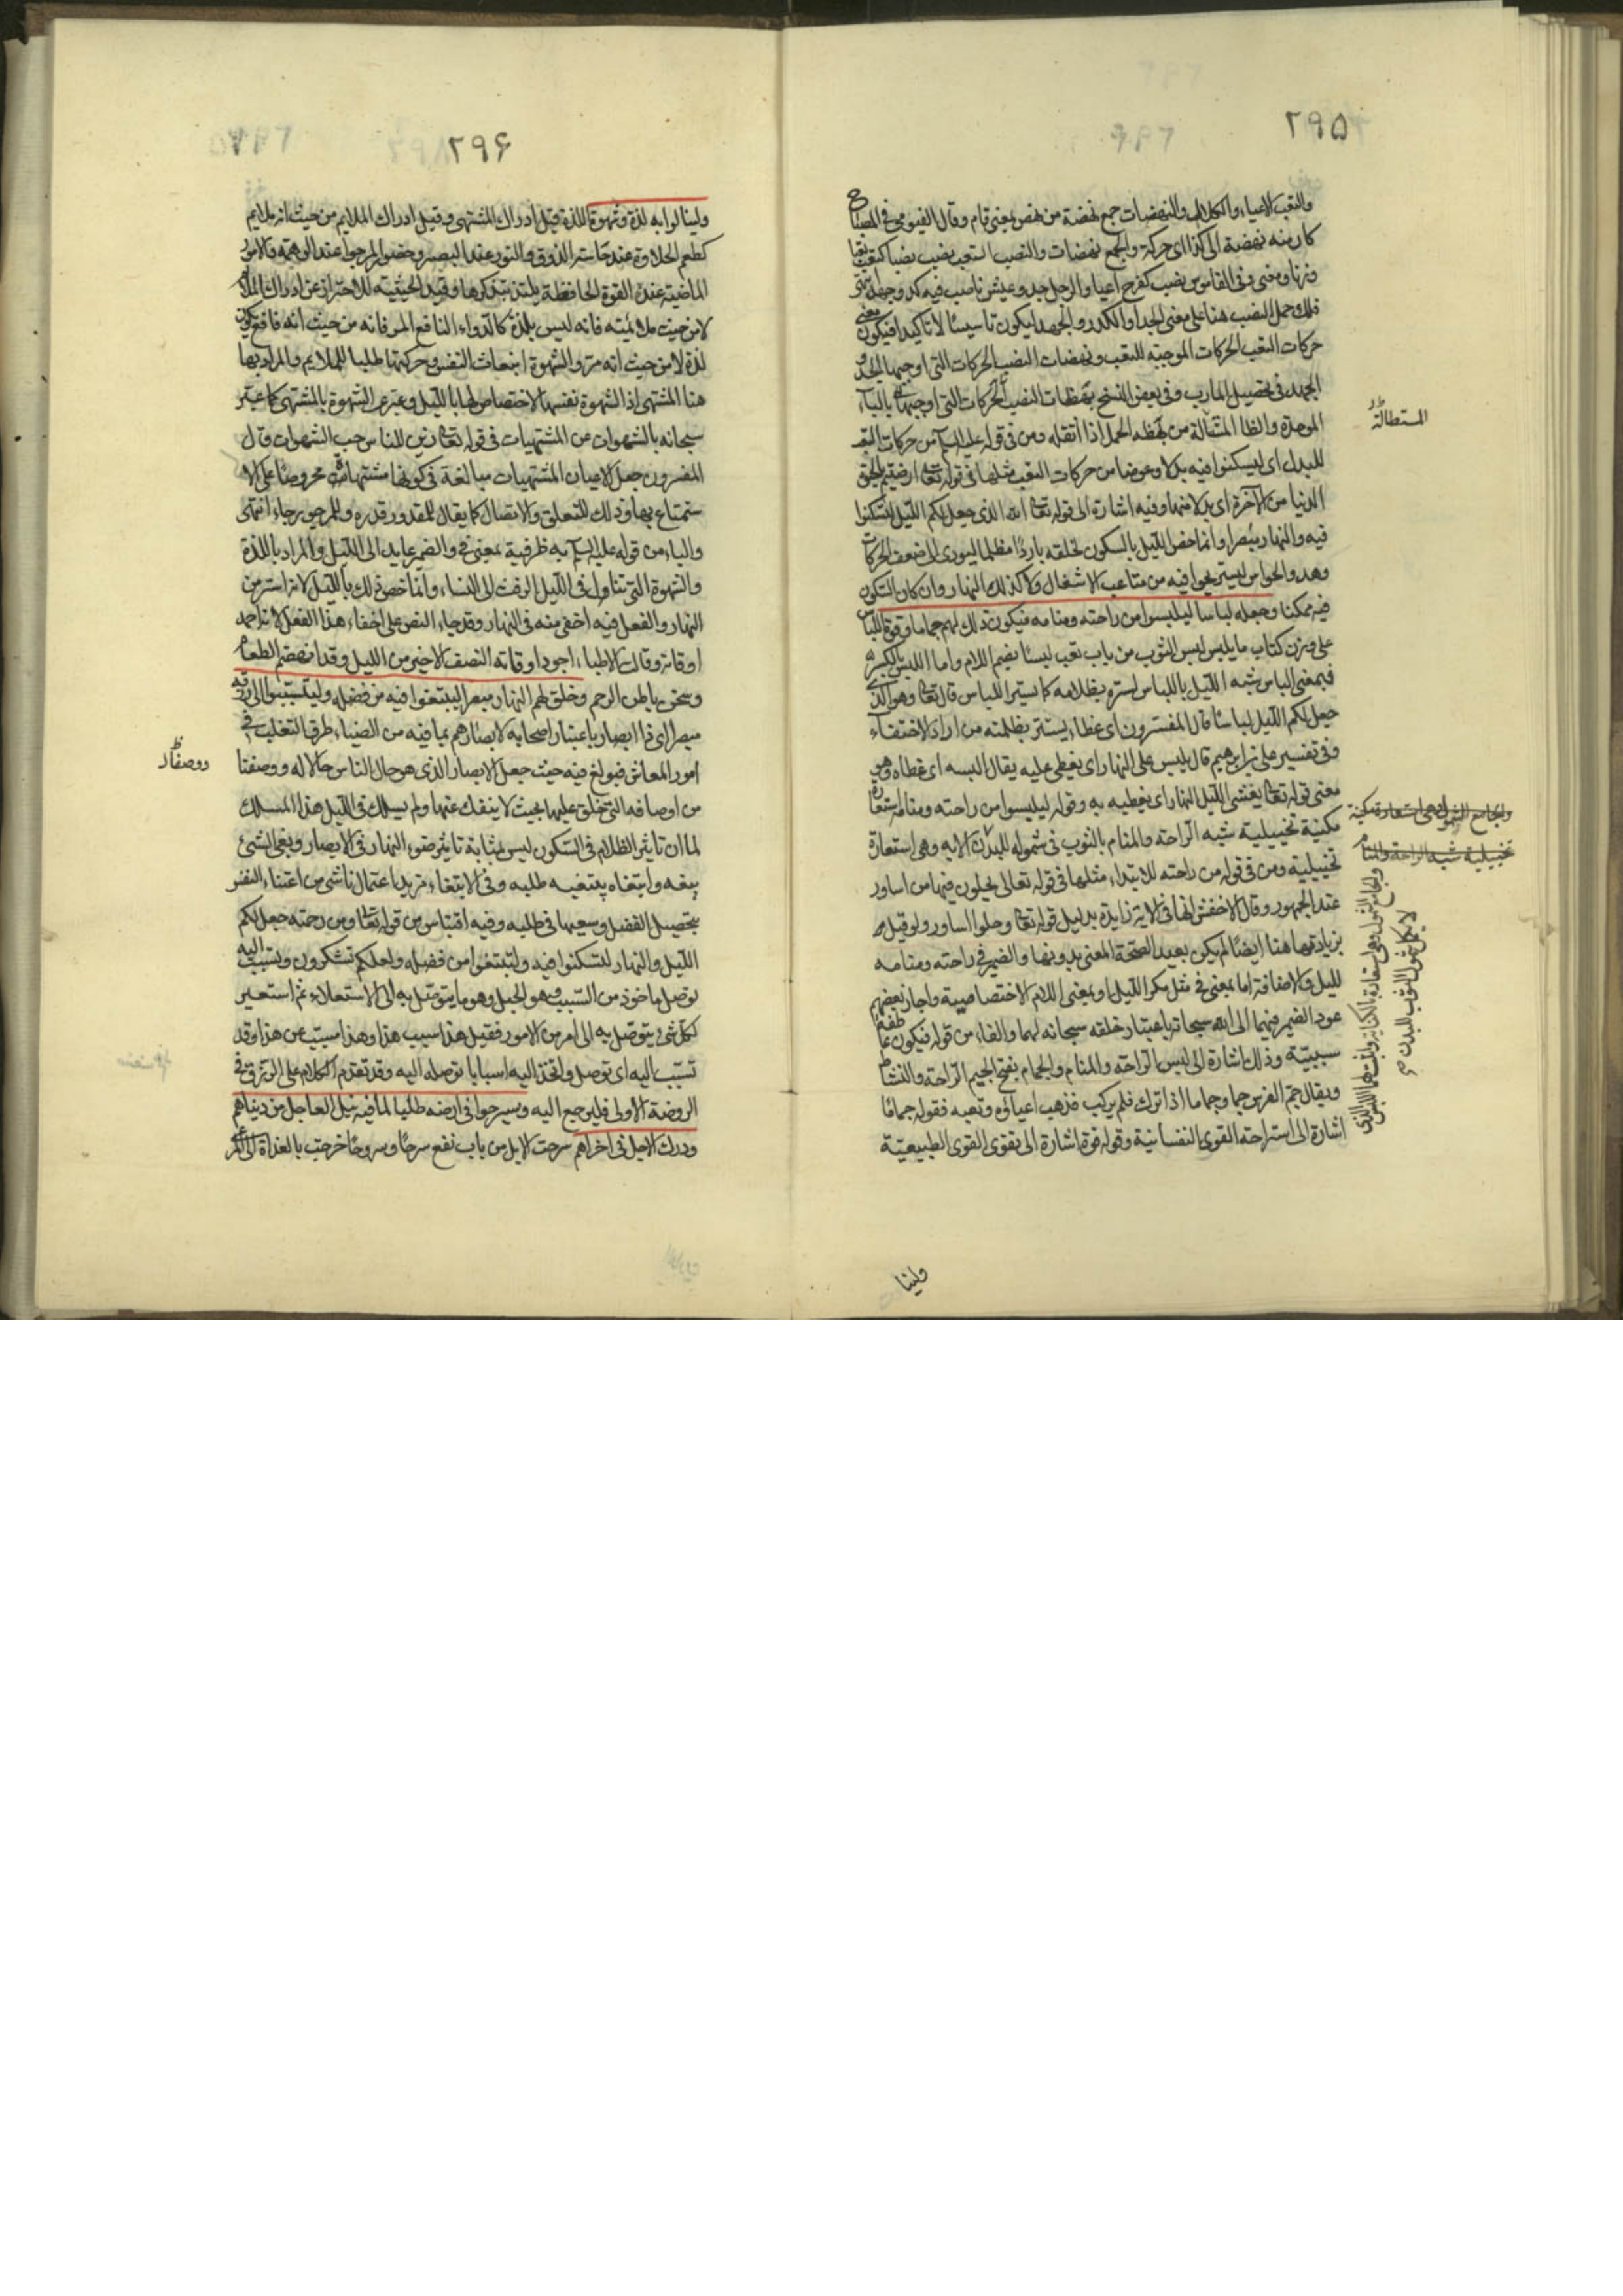 ٢٩٥
والتعب الاعياء والكلال والنهضات جمع نهضة من نهض بمعنى قام وقال الفيومي في المصباح
كان منه نهضة الى كذا اى حركة والجمع نهضات والنصب التعب نصب ينصب نصبا كتعب تعبا
وزنا ومعنى وفى القاموس نصب كفرح اعيا والرجل جد وعيش ناصب فيه كد وجهد
فلك حمل النصب هنا على معنى الجد او الكد والجهد ليكون تاسيسا لا تاكيدا فيكون معنى
حركات التعب الحركات الموجبة للتعب ونهضات النصب الحركات التى اوجبها الجد و
الجهد فى تحصيل المآرب وفى بعض النسخ بهظات النصب الحركات التى اوجبها بالباء
الموحدة والظا المشالة من بهظه الحمل اذا اثقله ومن فى قوله عليه السلام من حركات التعب
للبدل اى ليسكنوا فيه بدلا وعوضا من حركات التعب مثلها فى قوله تعالى ارضيتم بالحيوة
الدنيا من الآخرة اى بدلا منها وفيه اشارة الى قوله تعالى الله الذى جعل لكم الليل لتسكنوا
فيه والنهار مبصرا وانما خص الليل بالسكون لخلقه باردا مظلما ليودى الى ضعف الحركات
وهدو الحواس ليستريحوا فيه من متاعب الاشغال ولا كذلك النهار وان كان السكون
فيه ممكنا وجعله لباسا ليلبسوا من راحته ومنامه فيكون ذلك لهم جماما وقوة اللباس
على وزن كتاب ما يلبس لبس الثوب من باب تعب لبسا بضم اللام واما اللبس بالكسر
فبمعنى اللباس شبه الليل باللباس لستره بظلامه كما يستر اللباس قال تعالى وهو الذى
جعل لكم الليل لباسا قال المفسرون اى غطاء يستتر بظلمته من اراد الاختفاء
وفى تفسير على بن ابراهيم قال يلبس على النهار اى يغطى عليه يقال البسه اى غطاه وهو
معنى قوله تعالى يغشى الليل النهار اى يغطيه به وقوله ليلبسوا من راحته ومنامه استعارة
مكنية تخييلية شبه الراحة والمنام بالثوب فى شموله للبدن وهى استعارة
تخييلية ومن فى قوله من راحته للابتداء مثلها فى قوله تعالى يحلون فيها من اساور
عند الجمهور وقال الاخفش انها فى الاية زايدة بدليل قوله تعالى وحلوا اساور ولو قيل
بزيادتها هنا ايضا لم يكن بعيدا لصحة المعنى بدونها والضمير فى راحته ومنامه
لليل والاضافة اما بمعنى فى مثل مكر الليل او بمعنى اللام الاختصاصية واجاز بعضهم
عود الضمير فيهما الى الله سبحانه باعتبار خلقه سبحانه لهما والفاء من قوله فيكون عاطفة
سببية وذلك اشارة الى لبس الراحة والمنام والجمام بفتح الجيم الراحة والنشاط
ويقال جم الفرس جما وجماما اذا ترك فلم يركب فذهب اعياؤه وتعبه فقوله جماما
اشارة الى استراحة القوى النفسانية وقوله قوة اشارة الى تقوى القوى الطبيعية
ولينا
المستطالة
والجامع الشمول وهى استعارة مكنية
تخييلية شبه الراحة والمنام
٢٩۶
ولينالوا به لذة وشهوة اللذة قيل ادراك المشتهى وقيل ادراك الملايم من حيث انه ملايم
كطعم الحلاوة عند حاسة الذوق والنور عند البصر وحضور المرجو عند الوهمية والامور
الماضية عند القوة الحافظة يلتذ بتذكرها وقيد الحيثية للاحتراز عن ادراك الملائم
لا من حيث ملائمته فانه ليس بلذة كالدواء النافع المر فانه من حيث انه نافع يكون
لذة لا من حيث انه مر والشهوة انبعاث النفس وحركتها طلبا للملايم والمراد بها
هنا المشتهى اذ الشهوة نفسها لا اختصاص لها بالليل وعبر عن الشهوة بالمشتهى كما عبر
سبحانه بالشهوات عن المشتهيات فى قوله تعالى زين للناس حب الشهوات قال
المفسرون جعل الاعيان المشتهيات مبالغة فى كونها مشتهاة محروصا على الا
ستمتاع بها وذلك للتعلق والاتصال كما يقال للمقدور قدرة وللمرجو رجاء انتهى
والباء من قوله عليه السلام به ظرفية بمعنى فى والضمير عايد الى الليل والمراد باللذة
والشهوة التى تناول فى الليل الرفث الى النساء وانما خص ذلك بالليل لانه استر من
النهار والفعل فيه اخفى منه فى النهار وقد جاء النص على اخفاء هذا الفعل لا تراحمه
اوقاته وقالت الاطباء اجود اوقاته النصف الاخير من الليل وقد انهضم الطعام
وسخن باطن الرحم وخلق لهم النهار مبصرا ليبتغوا فيه من فضله وليتسببوا الى رزقه
مبصرا اى ذا ابصار باعتبار اصحابه لابصارهم بما فيه من الضياء طرق التقلب فى
امور المعاش فبولغ فيه حيث جعل الابصار الذى هو حال الناس حالا له ووصفا
من اوصافه التى خلق عليها بحيث لا ينفك عنها ولم يسلك فى الليل هذا المسلك
لما ان تاثير الظلام فى السكون ليس بمثابة تاثير ضوء النهار فى الابصار وبغى الشئ
يبغيه وابتغاه يبتغيه طلبه وفى الابتغاء مزيد اعتمال ناشى من اعتناء النفس
بتحصيل الفضل وسعيها فى طلبه وفيه اقتباس من قوله تعالى ومن رحمته جعل لكم
الليل والنهار لتسكنوا فيه ولتبتغوا من فضله ولعلكم تشكرون وتسبب اليه
توصل ماخوذ من السبب وهو الحبل وهو ما يتوصل به الى الاستعلاء ثم استعير
لكل شئ يتوصل به الى امر من الامور فقيل هذا سبب هذا وهذا مسبب عن هذا وقد
تسبب اليه اى توصل واتخذ اليه اسبابا توصله اليه وقد تقدم الكلام على الرزق فى
الروضة الاولى فليرجع اليه ويسرحوا فى ارضه طلبا لما فيه نيل العاجل من دنياهم
ودرك الاجل فى اخراهم سرحت الابل من باب نفع سرحا وسروحا خرجت بالغداة الى المرعى